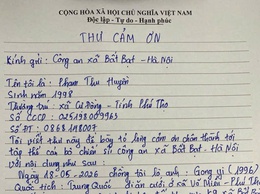 CỘNG HÒA XÃ HỘI CHỦ NGHĨA VIỆT NAM
Độc lập - Tự do - Hạnh phúc
THƯ CẢM ƠN
Kính gửi: Công an xã Bất Bạt - Hà Nội
Tên tôi là: Phạm Thu Huyền
Sinh năm 1998
Thường trú: xã Cự Đồng - Tỉnh Phú Thọ
Số CCCD: 025198009965
Số ĐT: 0868118007
Tôi viết thư này để bày tỏ lòng cảm ơn chân thành tới
tập thể cán bộ chiến sĩ Công an xã Bất Bạt - Hà Nội
với nội dung như sau:
Ngày 18-05-2026 chồng tôi là anh: Gong yi (1996)
Quốc tịch: Trung Quốc đi ăn cưới ở xã Võ Miếu - Phú Thọ